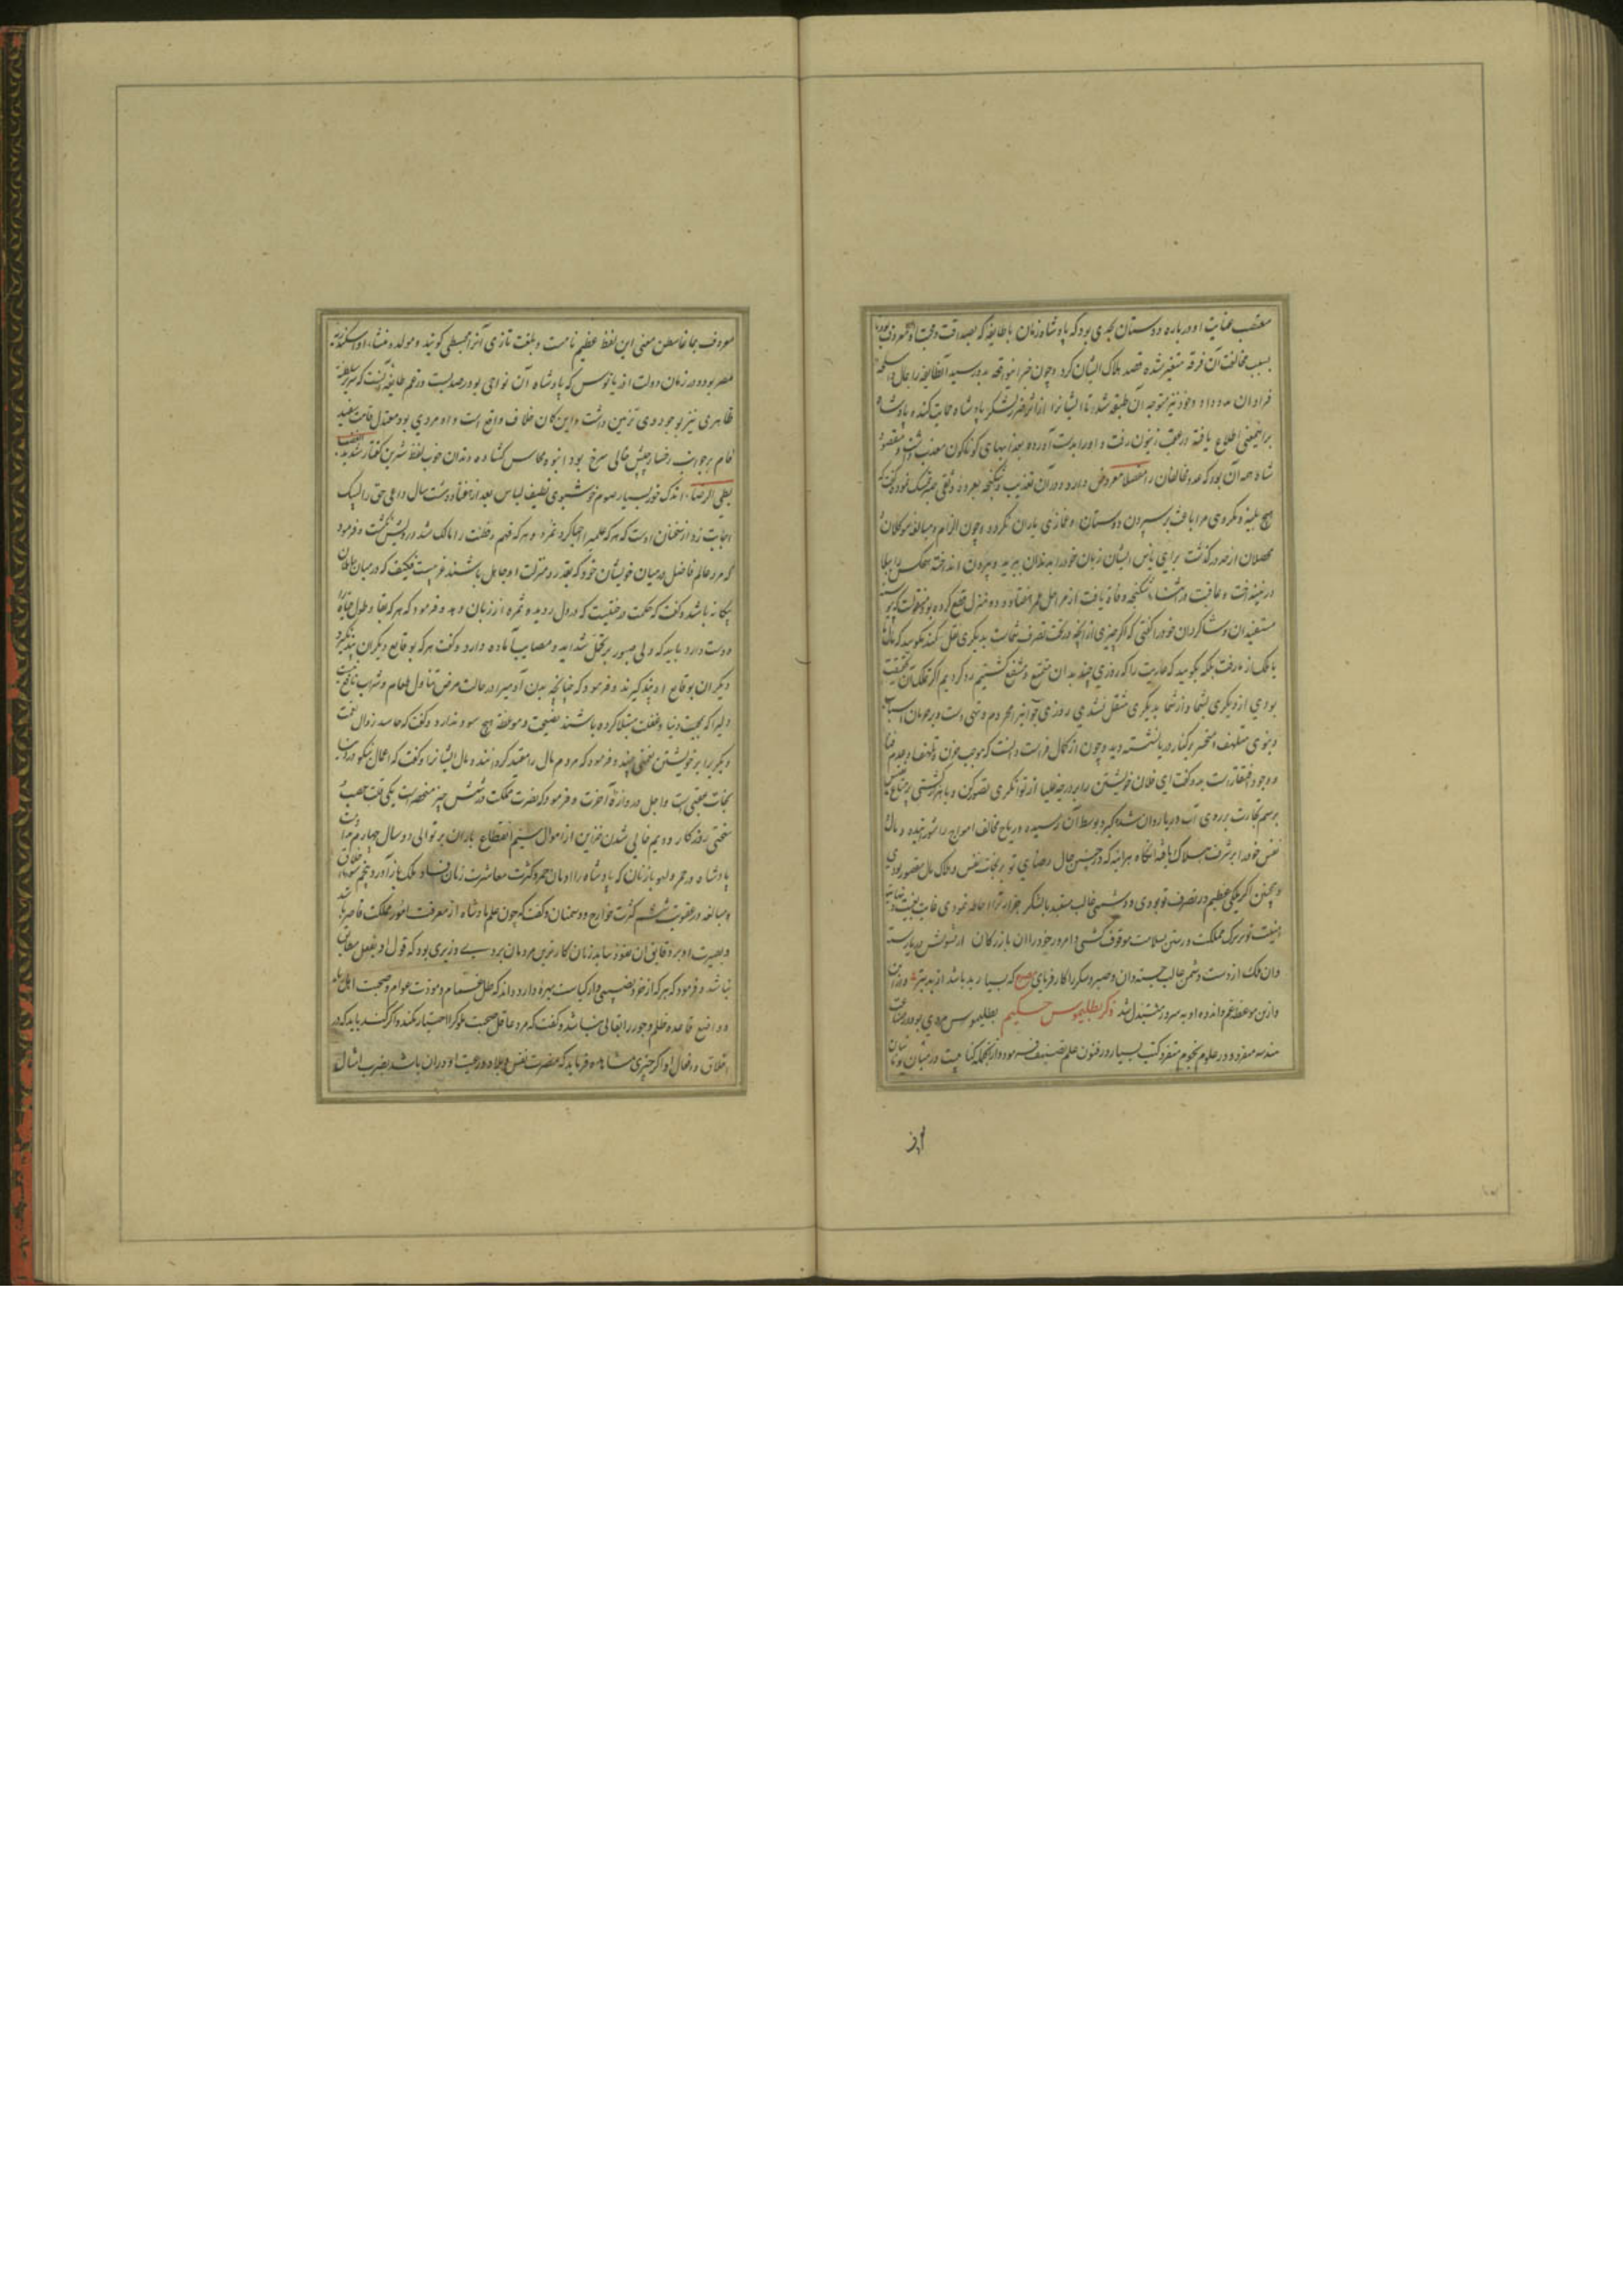 معتصب عنایت او درباره دوستان بحدی بود که پادشاه زمان با طایفه که بصداقت و محبت او معروف بودند
بسبب مخالفت آن فرقه متغیر شده قصد هلاک ایشان کرد و چون خبر این واقعه بدو رسید آن طایفه را رجال و اسلحه
فراوان مدد داد و خود نیز متوجه آن طبقه شد تا ایشانرا از اثر ضرر لشکر پادشاه حمایت کند و پادشاه
براینمعنی اطلاع یافته در عقب زینون رفت و اورا بدست آورده بعذابهای کوناکون معذب داشت و مقصود
شاه همه آن بود که عدد مخالفان را مفصلا معروض دارد و در آن تعذیب و شکنجه
هیچ بلیه و مکروهی مرا باعث بر سپردن دوستان و غمازی یاران نکردد و چون الزام و مبالغه موکلان
محصلان از حد درکذشت برای یاس ایشان زبان خود را بدندان ببرید و بیرون انداخت
و عاقبت در اثناء شکنجه وفاة یافت از مراحل عمر هفتاد و دو منزل قطع کرده بود منقولست که
مستفیدان و شاکردان خود را کفتی که اکر چیزی از آنچه در تحت تصرف شماست بدیکری نقل کند مکویید که مال
یا ملک از ما رفت بلکه بکویید که عاریت را که روزی چند بدان متمتع و منتفع کشتیم رد کردیم
بودی از دیکری بشما و از شما بدیکری منتقل نشدی روزی جوانیرا محروم و تهی دست و برحرمان اسباب
دنیوی متلهف و متحسر بر کنار دریا نشسته دید و چون از کمال فراست دانست که موجب حزن و تلهف او عدم غنا
و وجود فقر است بدو کفت ای فلان خویشتن را بدرجه علیا از توانکری تصور کن و با هزار کشتی پر متاع نفیس
برسم تجارت بر روی آب دریا روان شده کیر و بوسط آن رسیده و ریاح مخالف امواج را شورانیده و مال
نفس خود را بر شرف هلاک یافته آنکاه هر آینه که در چنین حال رضای تو بر نجات نفس و هلاک مال مقصور بودی
و همچنین اکر ملکی عظیم در تصرف تو بودی و دشمنی غالب مستبد با لشکر جرار ترا احاطه نمودی غایت بغیت و نهایت
منیت تو بر ترک مملکت و رستن بسلامت موقوف کشتی و امروز خود را آن بازرکان از شورش دریا رسته
دان و ملک از دست دشمن غالب جسته دان و صبر و شکر را کار فرمای مصرع که بسیار بد باشد از بد بتر
و ازین موعظه غم و اندوه او به سرور متبدل شد ذکر بطلیموس حکیم بطلیموس مردی بود در صناعت
هندسه متفرد و در علوم نجوم متفرد کتب بسیار در فنون علم تصنیف فرموده و از آنجمله کتابیست در میان یونانیان
از
معروف بماغاسطن معنی این لفظ عظیم تامست و بلغت تازی آنرا مجسطی کویند و مولد و منشاء او اسکندریه
مصر بوده و در زمان دولت اذریانوس که پادشاه آن نواحی بود رصد بست و زعم طایفه آنست که سریر سلطنت
ظاهری نیز بوجود وی تزیین داشت و این کمان خلاف واقع است و او مردی بود معتدل قامت سفید
فام بر جانب رخسار چپش خالی سرخ بود انبوه محاسن کشاده دندان خوب لفظ شیرین کفتار شدید الغضب
بطی الرضا، اندک خور بسیار صوم خوشبوی نظیف لباس بعد از هفتاد و هشت سال داعی حق را لبیک
اجابت زد از سخنان اوست که هر که علم را احیا کرد نمرد و هر که فهم و فطنت را مالک شد درویش نکشت و فرمود
که مرد عالم فاضل در میان خویشان خود که بقدر و منزلت او جاهل باشند غریب است فکیف که در میان جاهلان
بیکانه باشد و کفت که حکمت درختیست که در دل روید و ثمره از زبان دهد و فرمود که هر که بقا و طول حیاة
دوست دارد باید که دلی صبور بر تحمل شداید و مصایب آماده دارد و کفت هر که بوقایع دیکران پند نکیرد
دیکران بوقایع او پند کیرند و فرمود که چنانچه بدن آدمیرا در حالت مرض تناول طعام و شراب نافع نیست
دلیرا که بمحبت دنیا و غفلت مبتلا کرده باشند نصیحت و موعظه هیچ سود ندارد و کفت که حاسد زوال نعمت
دیکریرا بر خویشتن نعمتی بیند و فرمود که مردم مال را معتبد کردانند و مال ایشانرا و کفت که اعمال نیکو در دنیا
نجات عقبی است و اجل دروازه آخرت و فرمود که مضرت مملکت در شش چیز منحصر است یکی
سختی روزکار دویم خالی شدن خزاین از اموال سیم انقطاع باران بر توالی دو سال چهارم
پادشاه در خمر و لهو با زنان که پادشاه را ادمان خمر و کثرت معاشرت زنان فساد ملک باز آورد و پنجم سوء اخلاق
و مبالغه در عقوبت ششم کثرت خوارج و دشمنان و کفت که چون علم پادشاه از معرفت امور مملکت قاصر باشد
و بصیرت او بر دقایق آن نفوذ نیابد زیان کارترین مردمان بر وی وزیری بود که قول او بفعل مطابق
نباشد و فرمود که هر که از خرد نصیبی و از کیاست بهره دارد داند که
و واضع قاعده ظلم و جور را بقائی نباشد و کفت که مرد عاقل صحبت ملوک را اختیار نکند و اکر کند باید که در
اخلاق و افعال او اکر چیزی مشاهده فرماید که مضرت نفس و بلاد و رعیت او در آن باشد بضرب امثال و